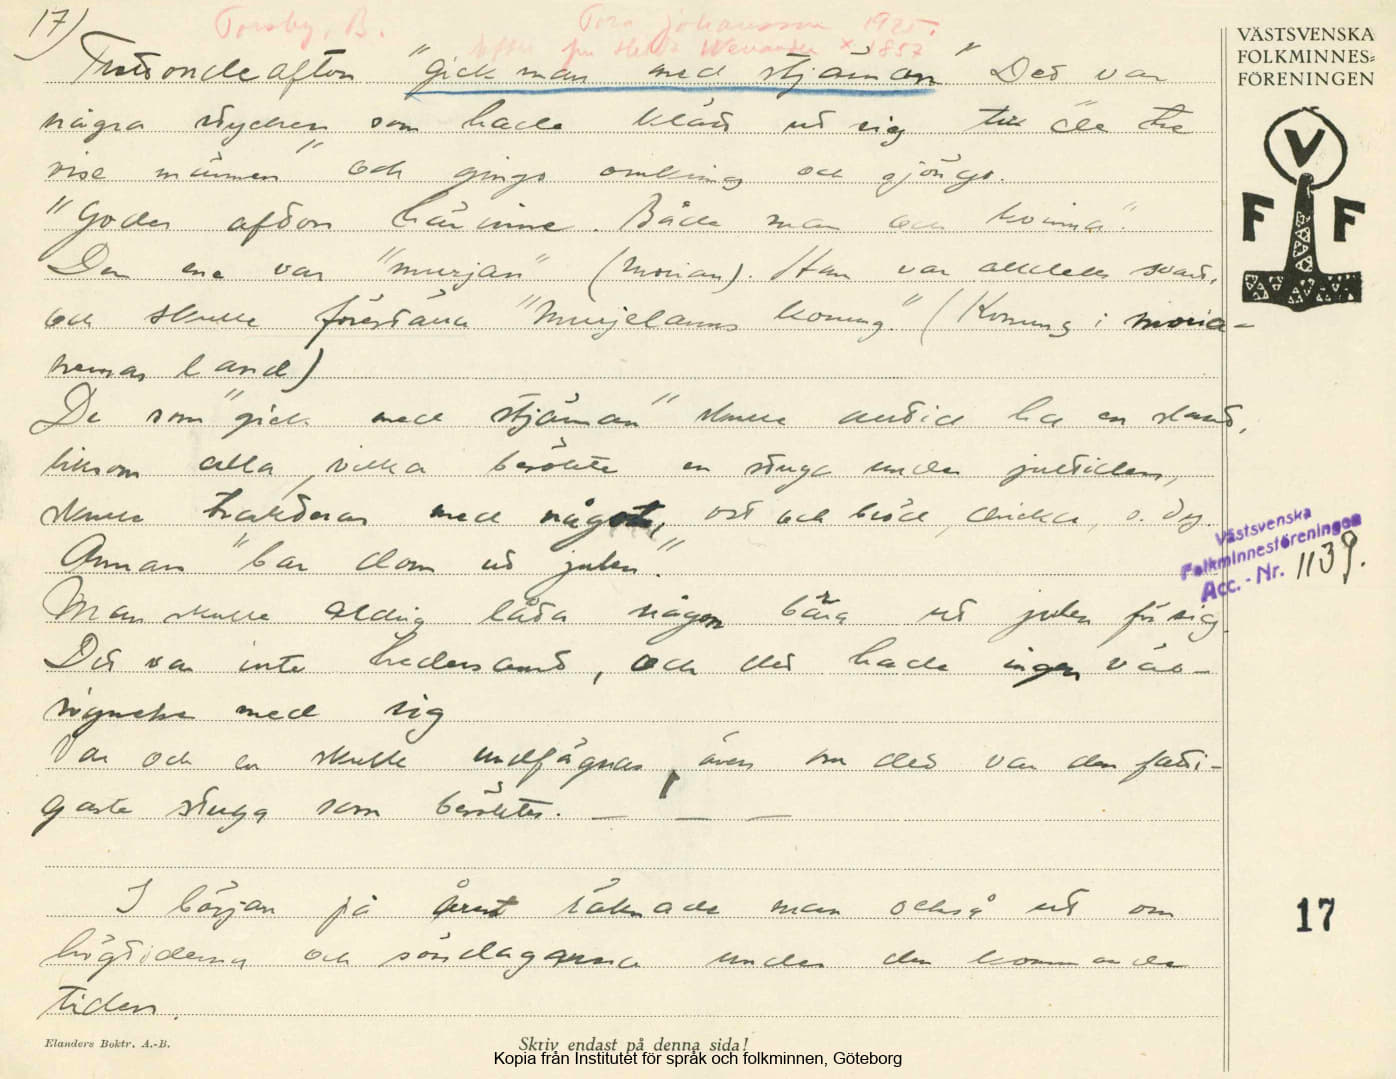 17)
Torsby, B.
Tora Johansson 1925.
efter fru Wenander * 1857
Trettondeafton "gick man med stjärnan" Det var
några stycken som hade klätt ut sig till "de tre
vise männen" och gingo omkring och sjöngo.
"Goder afton härinne. Både man och kvinna".
Den ene var "murjan" (morian). Han var alldeles svart,
och skulle föreställa "Murjelanns konung." (Konung i moria-
nernas land)
De som "gick med stjärnan" skulle alltid ha en skand,
liksom alla, vilka besökte en stuga under jultiden,
skulle trakteras med något, ost och bröd, dricka, o. dyl.
Annars "bar dom ut julen."
Man skulle aldrig låta någon bära ut julen för sig.
Det var inte hedersamt, och det hade ingen väl-
signelse med sig
Var och en skulle undfägnas, även om det var den fatti-
gaste stuga som besöktes. — — —
I början på året räknade man också ut om
högtiderna och söndagarna under den kommande
tiden.
VÄSTSVENSKA
FOLKMINNES=
FÖRENINGEN
V
F F
Västsvenska
Folkminnesföreningen
Acc. - Nr. 1139.
17
Elanders Boktr. A.-B.
Skriv endast på denna sida!
Kopia från Institutet för språk och folkminnen, Göteborg